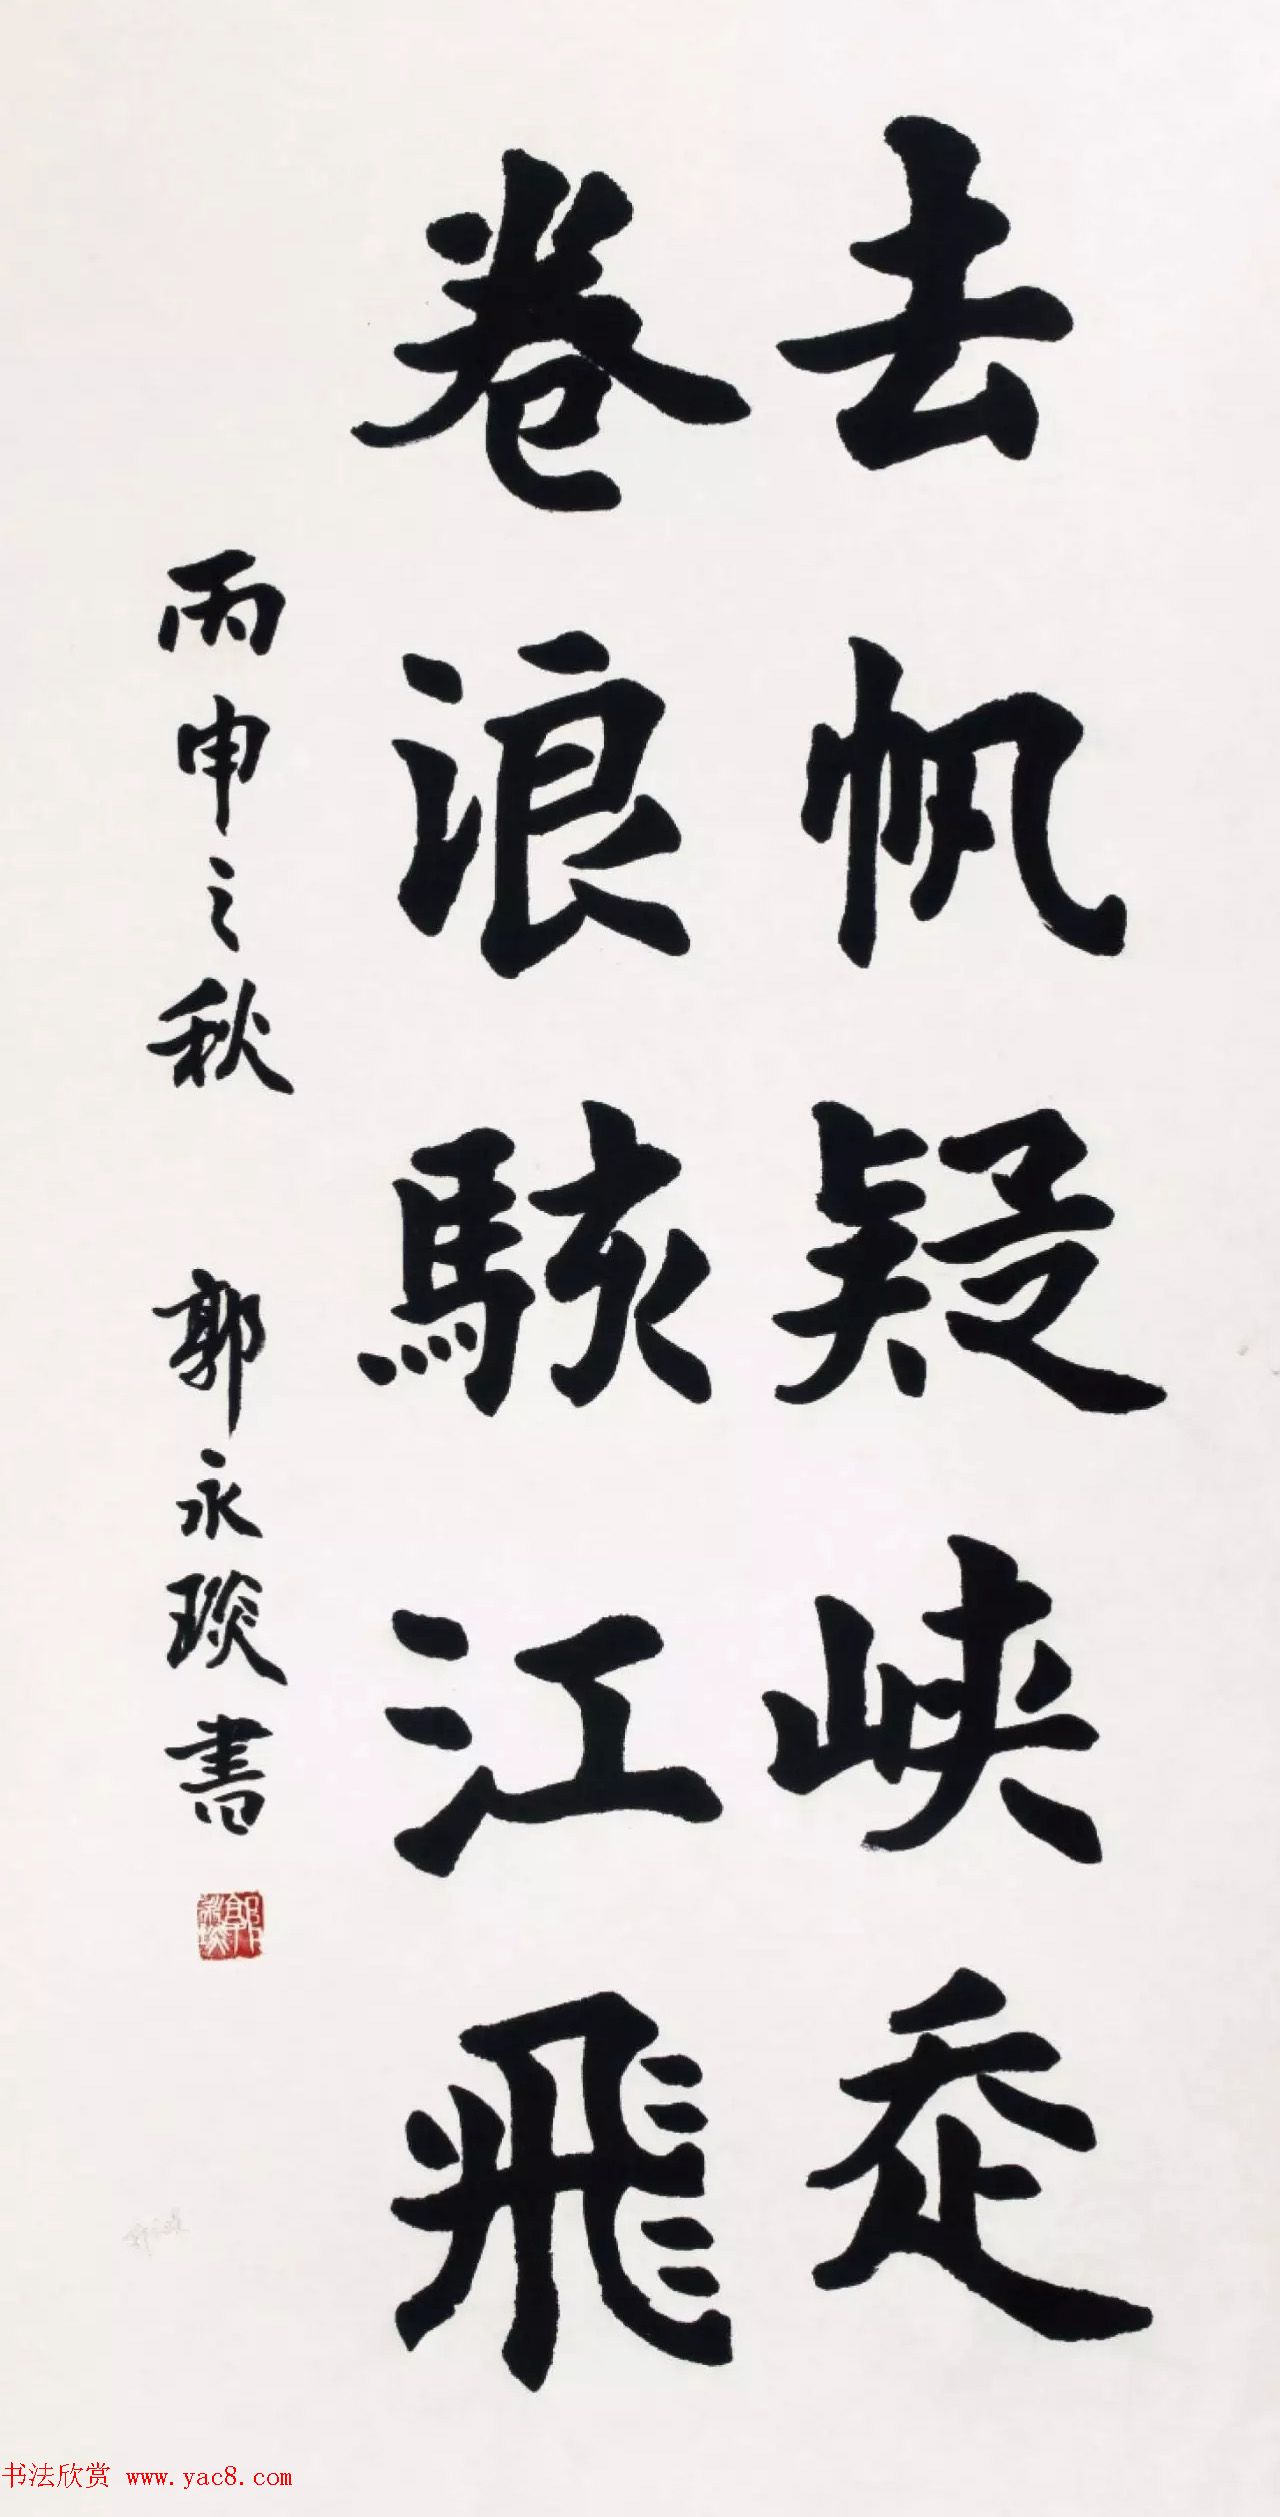 去帆疑峡走
卷浪駭江飛
丙申之秋 郭永琰書
郭永琰
书法欣赏 www.yac8.com